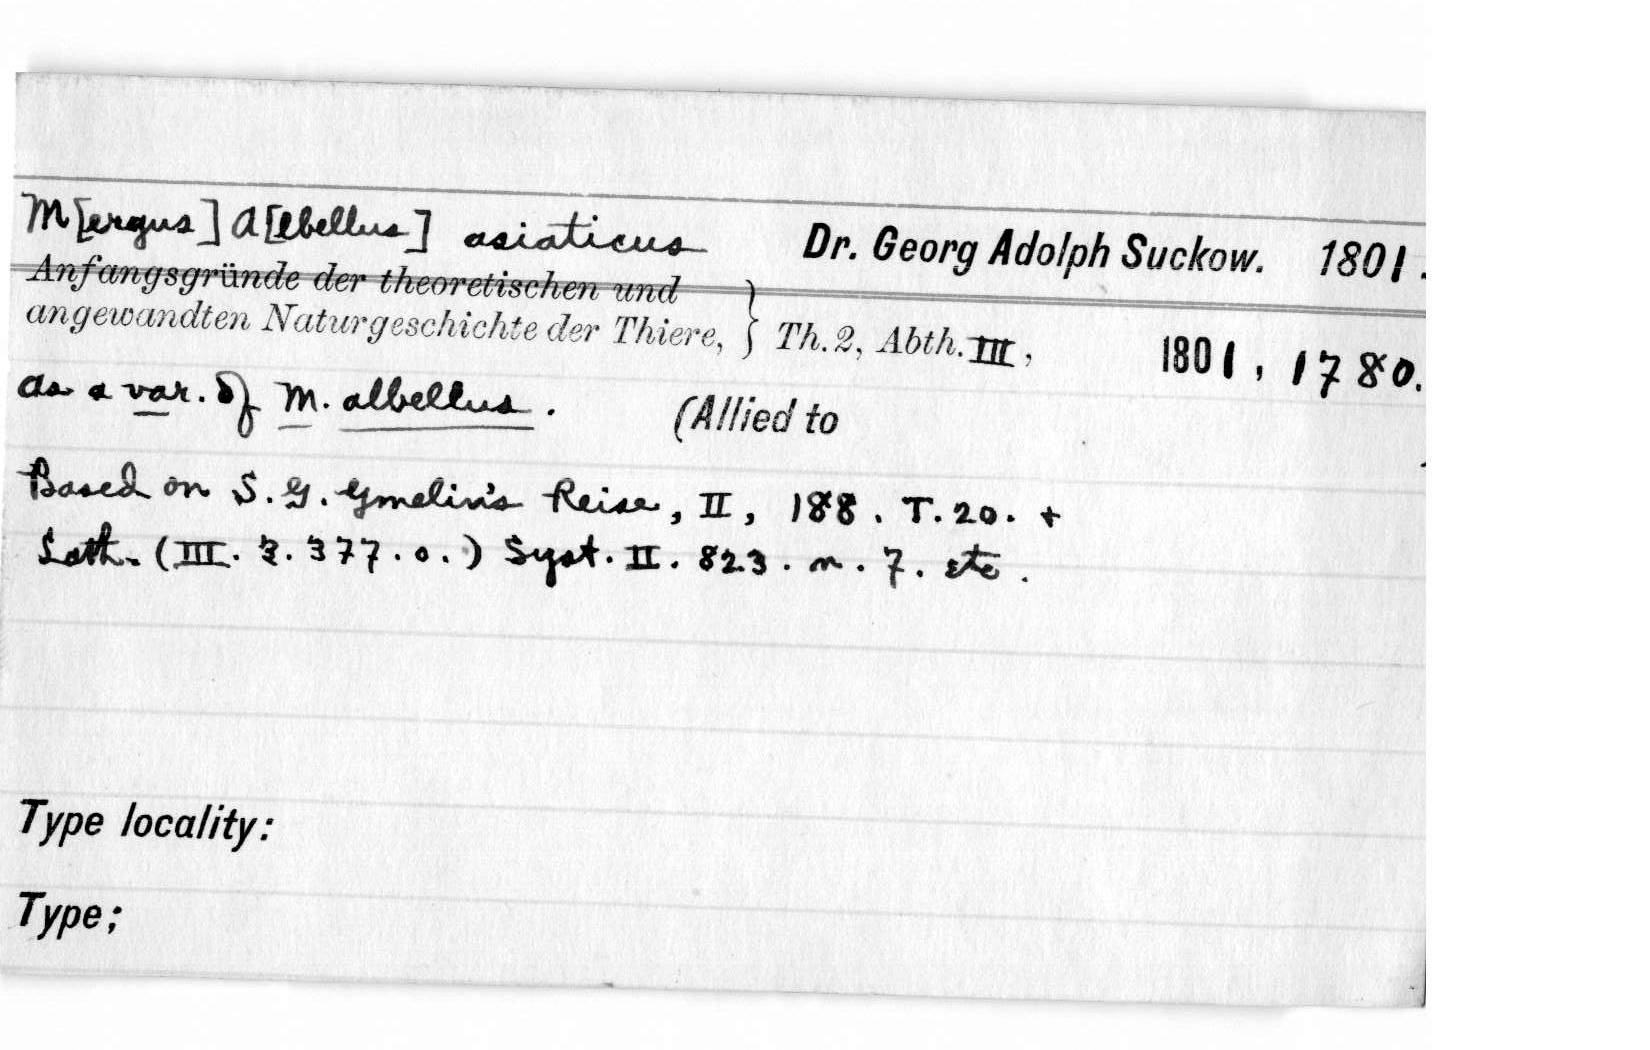 M[ergus] A[lbellus] asiaticus Dr. Georg Adolph Suckow. 1801.
Anfangsgründe der theoretischen und
angewandten Naturgeschichte der Thiere, } Th. 2, Abth. III, 1801, 1780.
as a var. of M. albellus. (Allied to
Based on S. G. Gmelin's Reise, II, 188. T. 20. +
Lath. (III. 2. 377. 0.) Syst. II. 823. n. 7. etc.
Type locality:
Type;